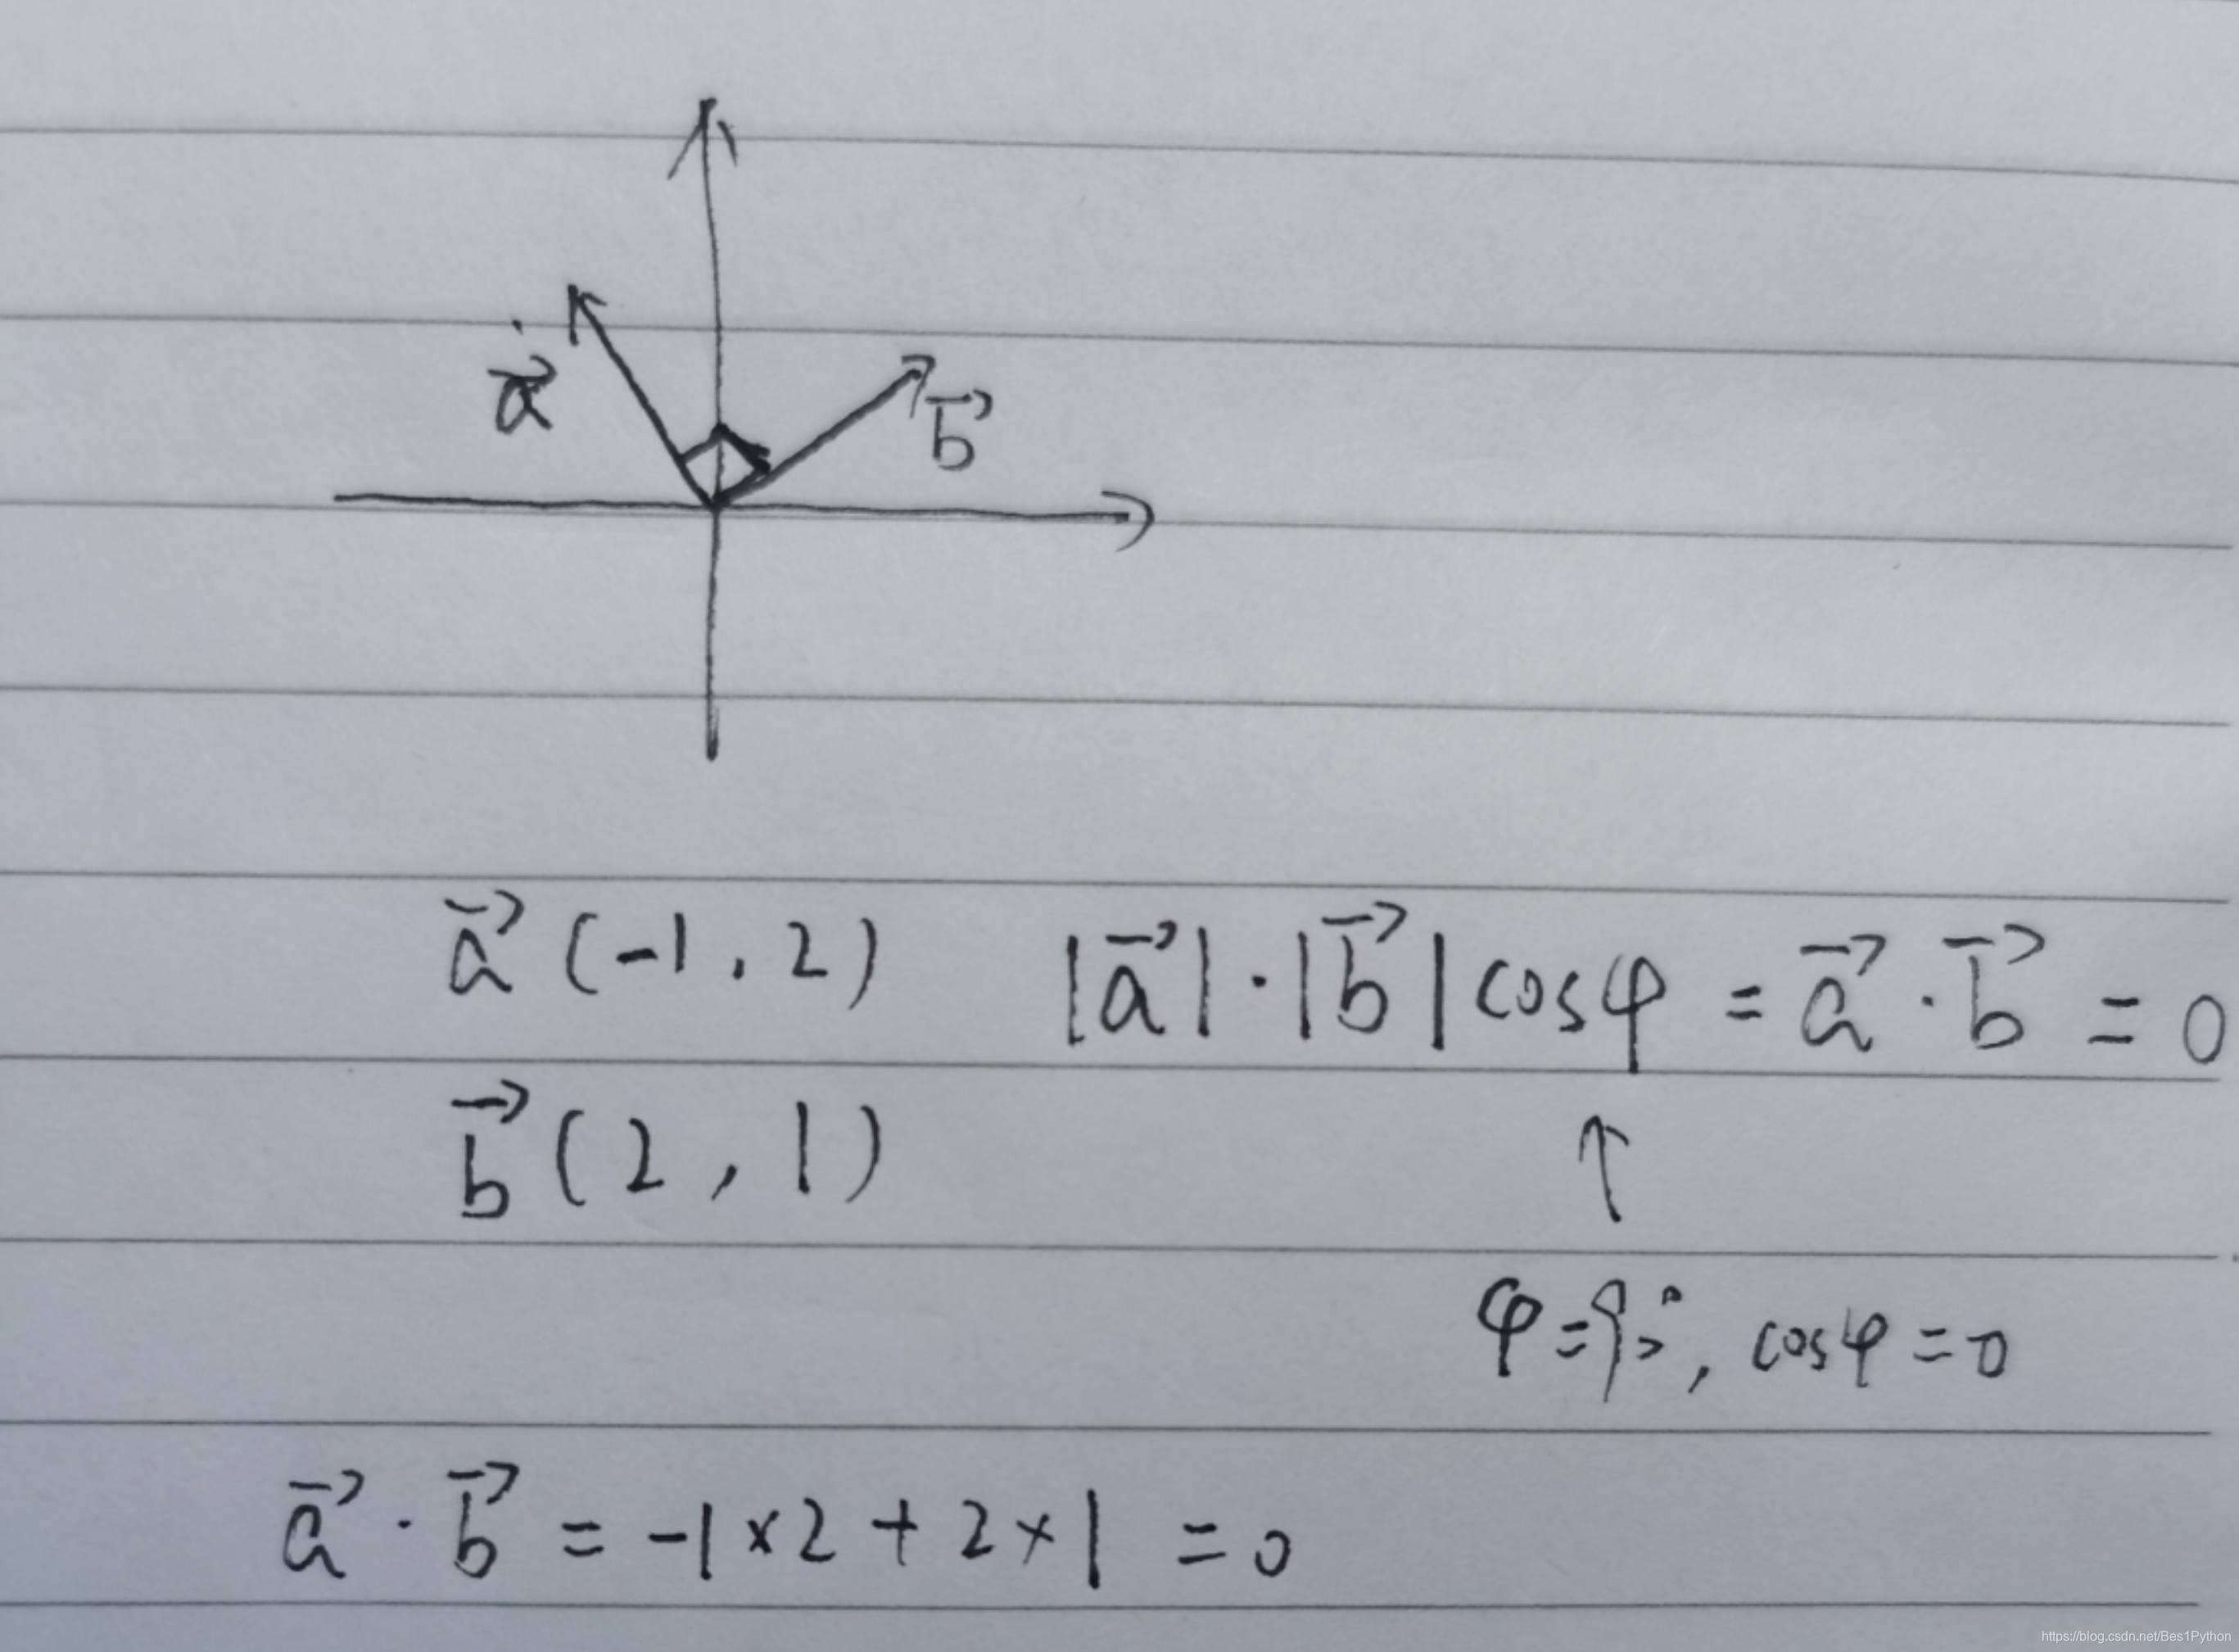 a⃗
b⃗
a⃗ (-1, 2) |a⃗|·|b⃗|cosφ = a⃗·b⃗ = 0
b⃗ (2, 1)
↑
φ=90°, cosφ=0
a⃗·b⃗ = -1×2+2×1 =0
https://blog.csdn.net/Bes1Python